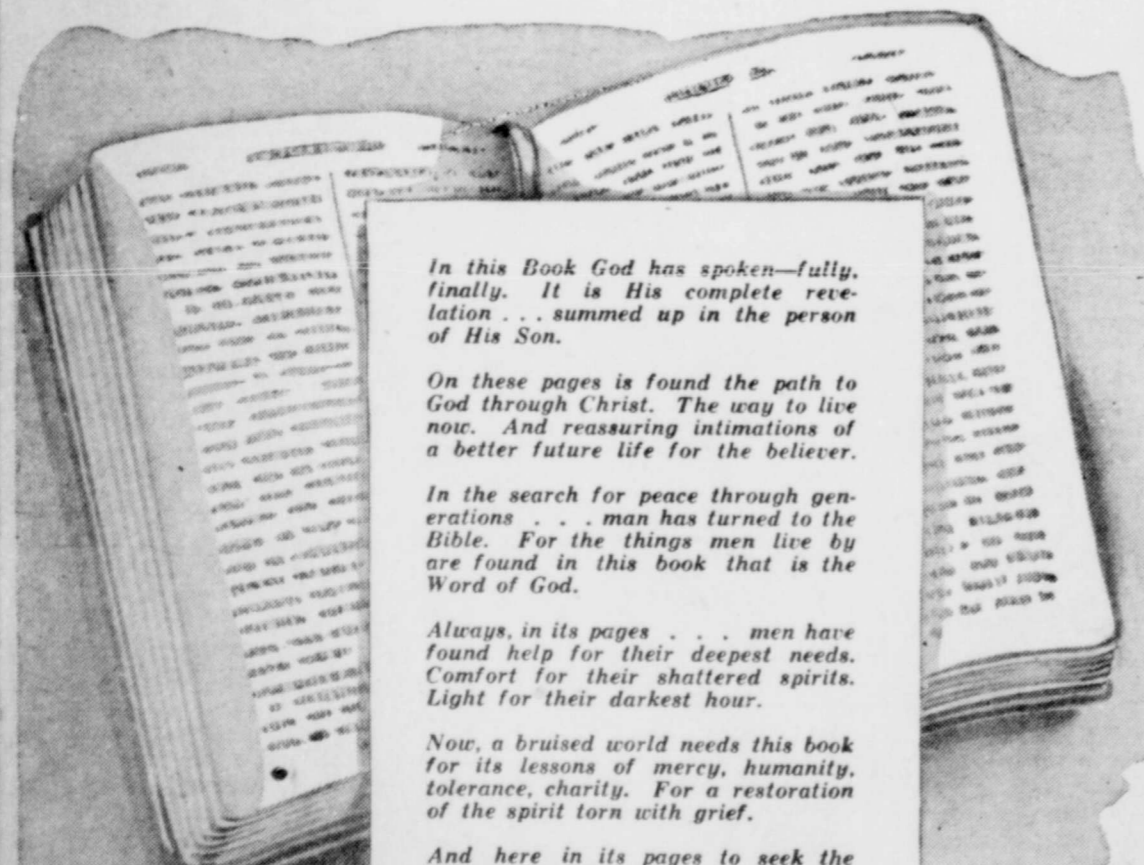 In this Book God has spoken—fully,
finally. It is His complete reve-
lation . . . summed up in the person
of His Son.
On these pages is found the path to
God through Christ. The way to live
now. And reassuring intimations of
a better future life for the believer.
In the search for peace through gen-
erations . . . man has turned to the
Bible. For the things men live by
are found in this book that is the
Word of God.
Always, in its pages . . . men have
found help for their deepest needs.
Comfort for their shattered spirits.
Light for their darkest hour.
Now, a bruised world needs this book
for its lessons of mercy, humanity,
tolerance, charity. For a restoration
of the spirit torn with grief.
And here in its pages to seek the